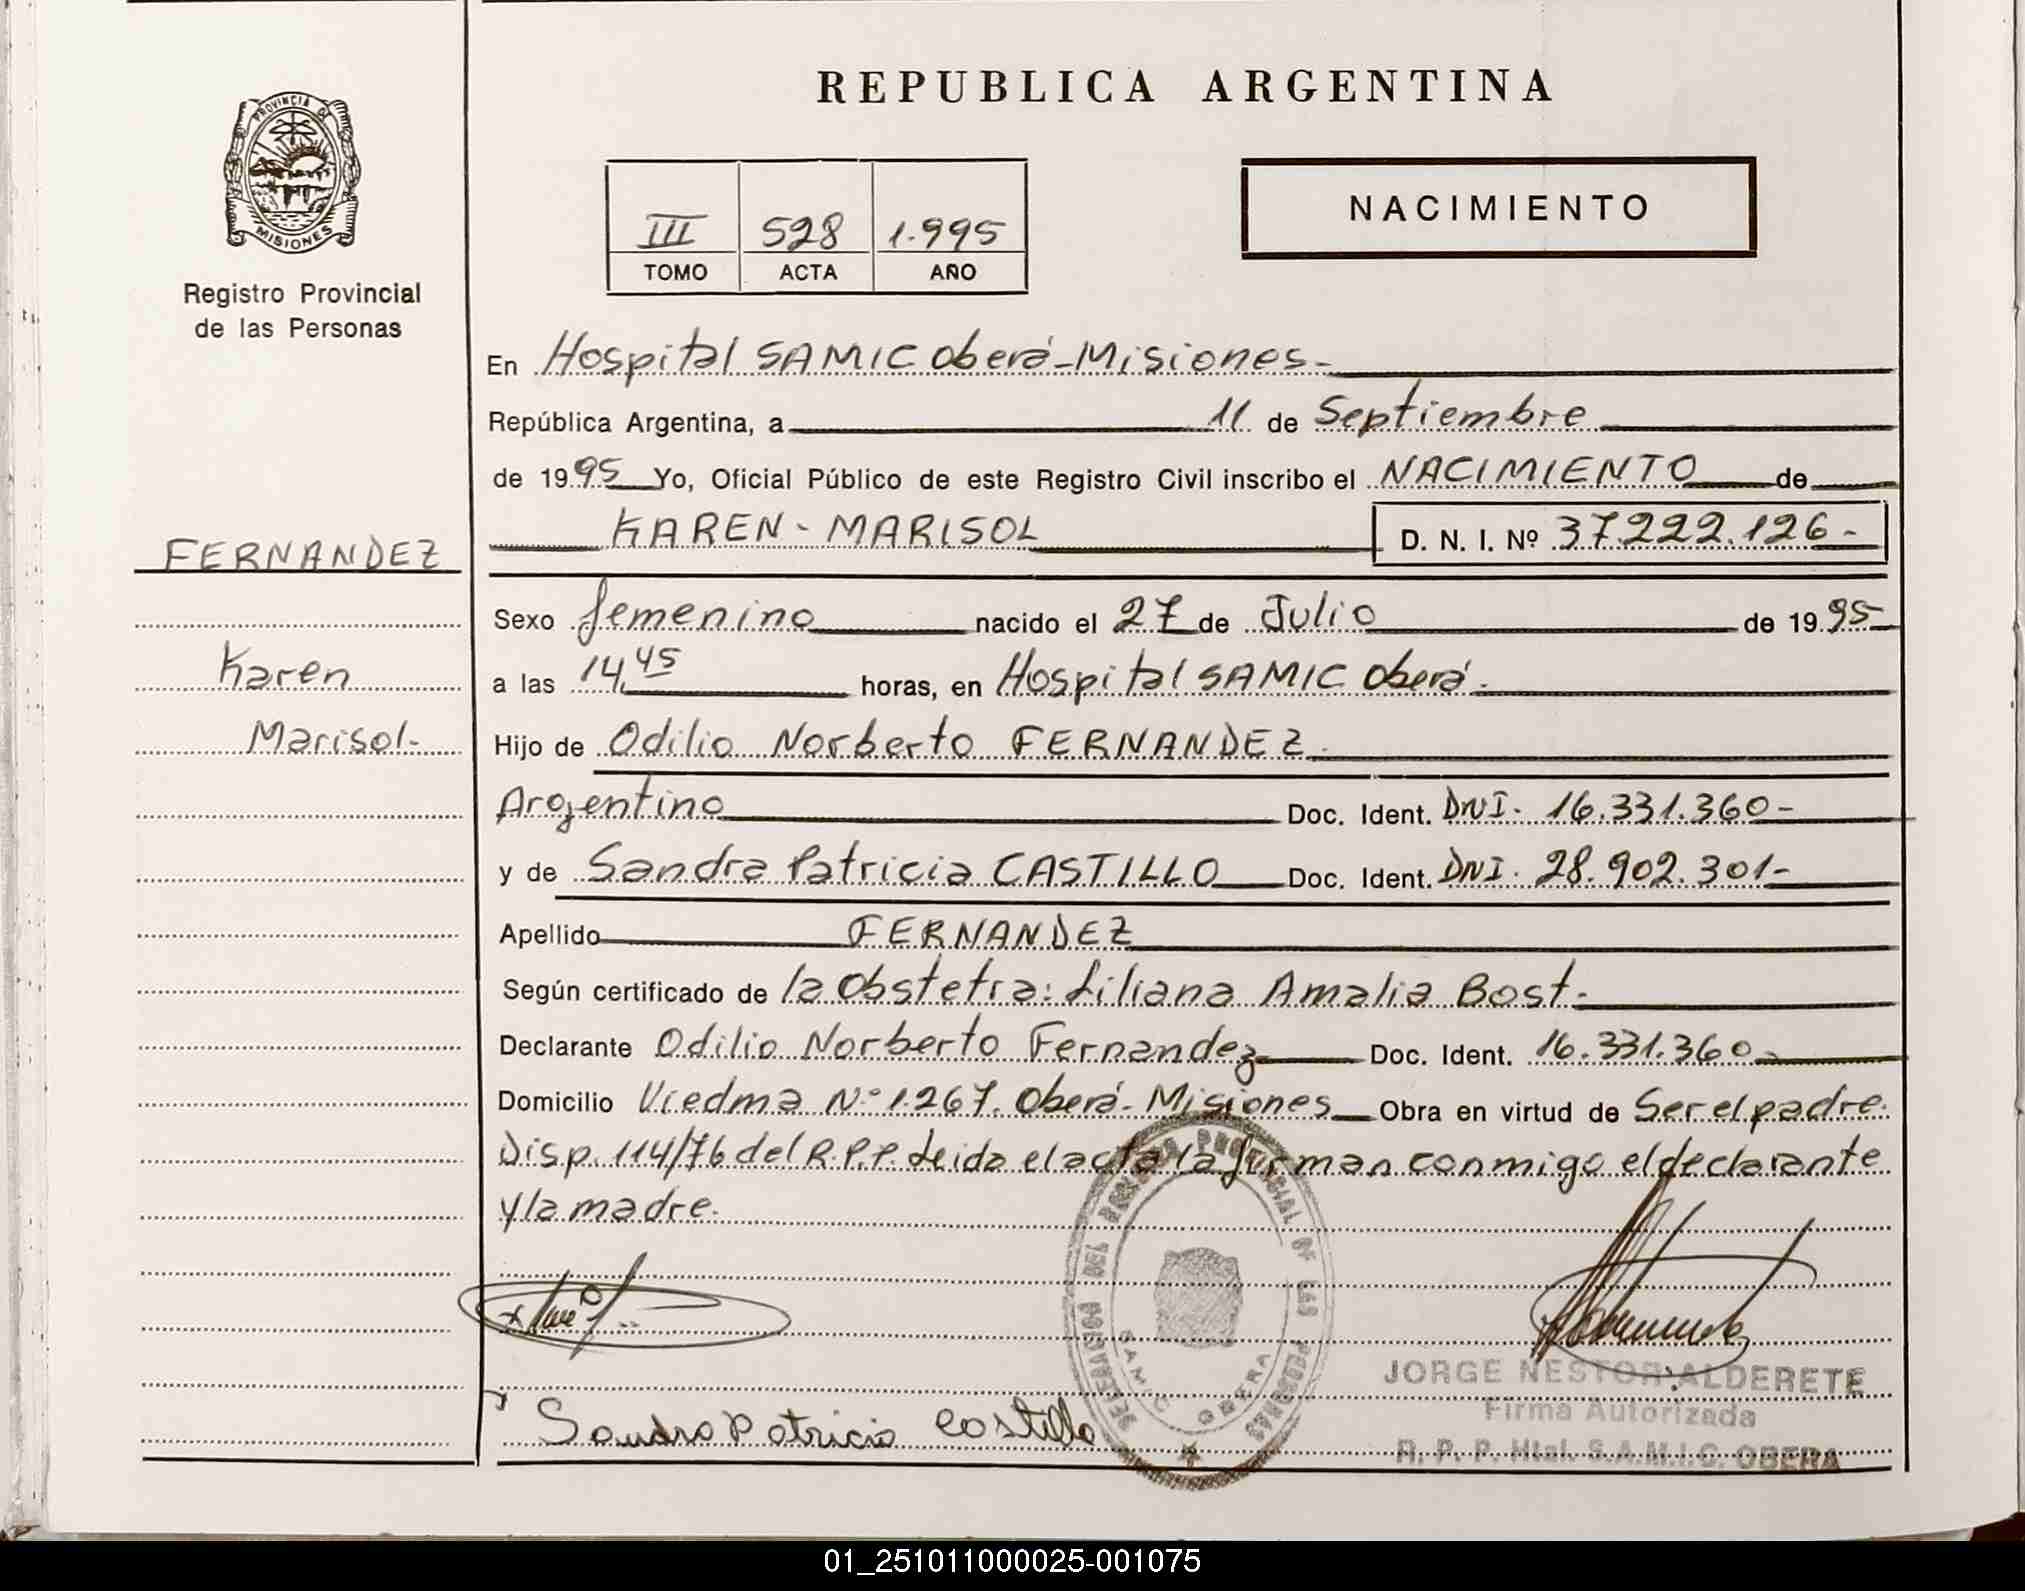 REPUBLICA ARGENTINA
PROVINCIA DE
MISIONES
Registro Provincial
de las Personas
III 528 1.995
TOMO ACTA AÑO
NACIMIENTO
En Hospital SAMIC Oberá-Misiones-
República Argentina, a 11 de Septiembre
de 1995 Yo, Oficial Público de este Registro Civil inscribo el NACIMIENTO de
KAREN-MARISOL D. N. I. Nº 37.222.126-
FERNANDEZ
Karen
Marisol-
Sexo femenino nacido el 27 de Julio de 1995
a las 14,45 horas, en Hospital SAMIC Oberá.
Hijo de Odilio Norberto FERNANDEZ.
Argentino Doc. Ident. DNI. 16.331.360-
y de Sandra Patricia CASTILLO Doc. Ident. DNI. 28.902.301-
Apellido FERNANDEZ
Según certificado de la Obstetra: Liliana Amalia Bost.
Declarante Odilio Norberto Fernandez Doc. Ident. 16.331.360-
Domicilio Viedma Nº 1.267. Oberá-Misiones Obra en virtud de Ser el padre.
Disp. 114/76 del R.P.P. Leida el acta la firman conmigo el declarante
y la madre.
REGISTRO PROVINCIAL DE LAS PERSONAS
SAMIC OBERA
JORGE NESTOR ALDERETE
Firma Autorizada
R. P. P. Htal. S.A.M.I.C. OBERA
Sandra Patricia Castillo
01_251011000025-001075